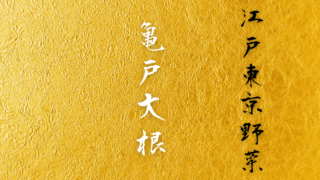 江戸東京野菜
亀戸大根